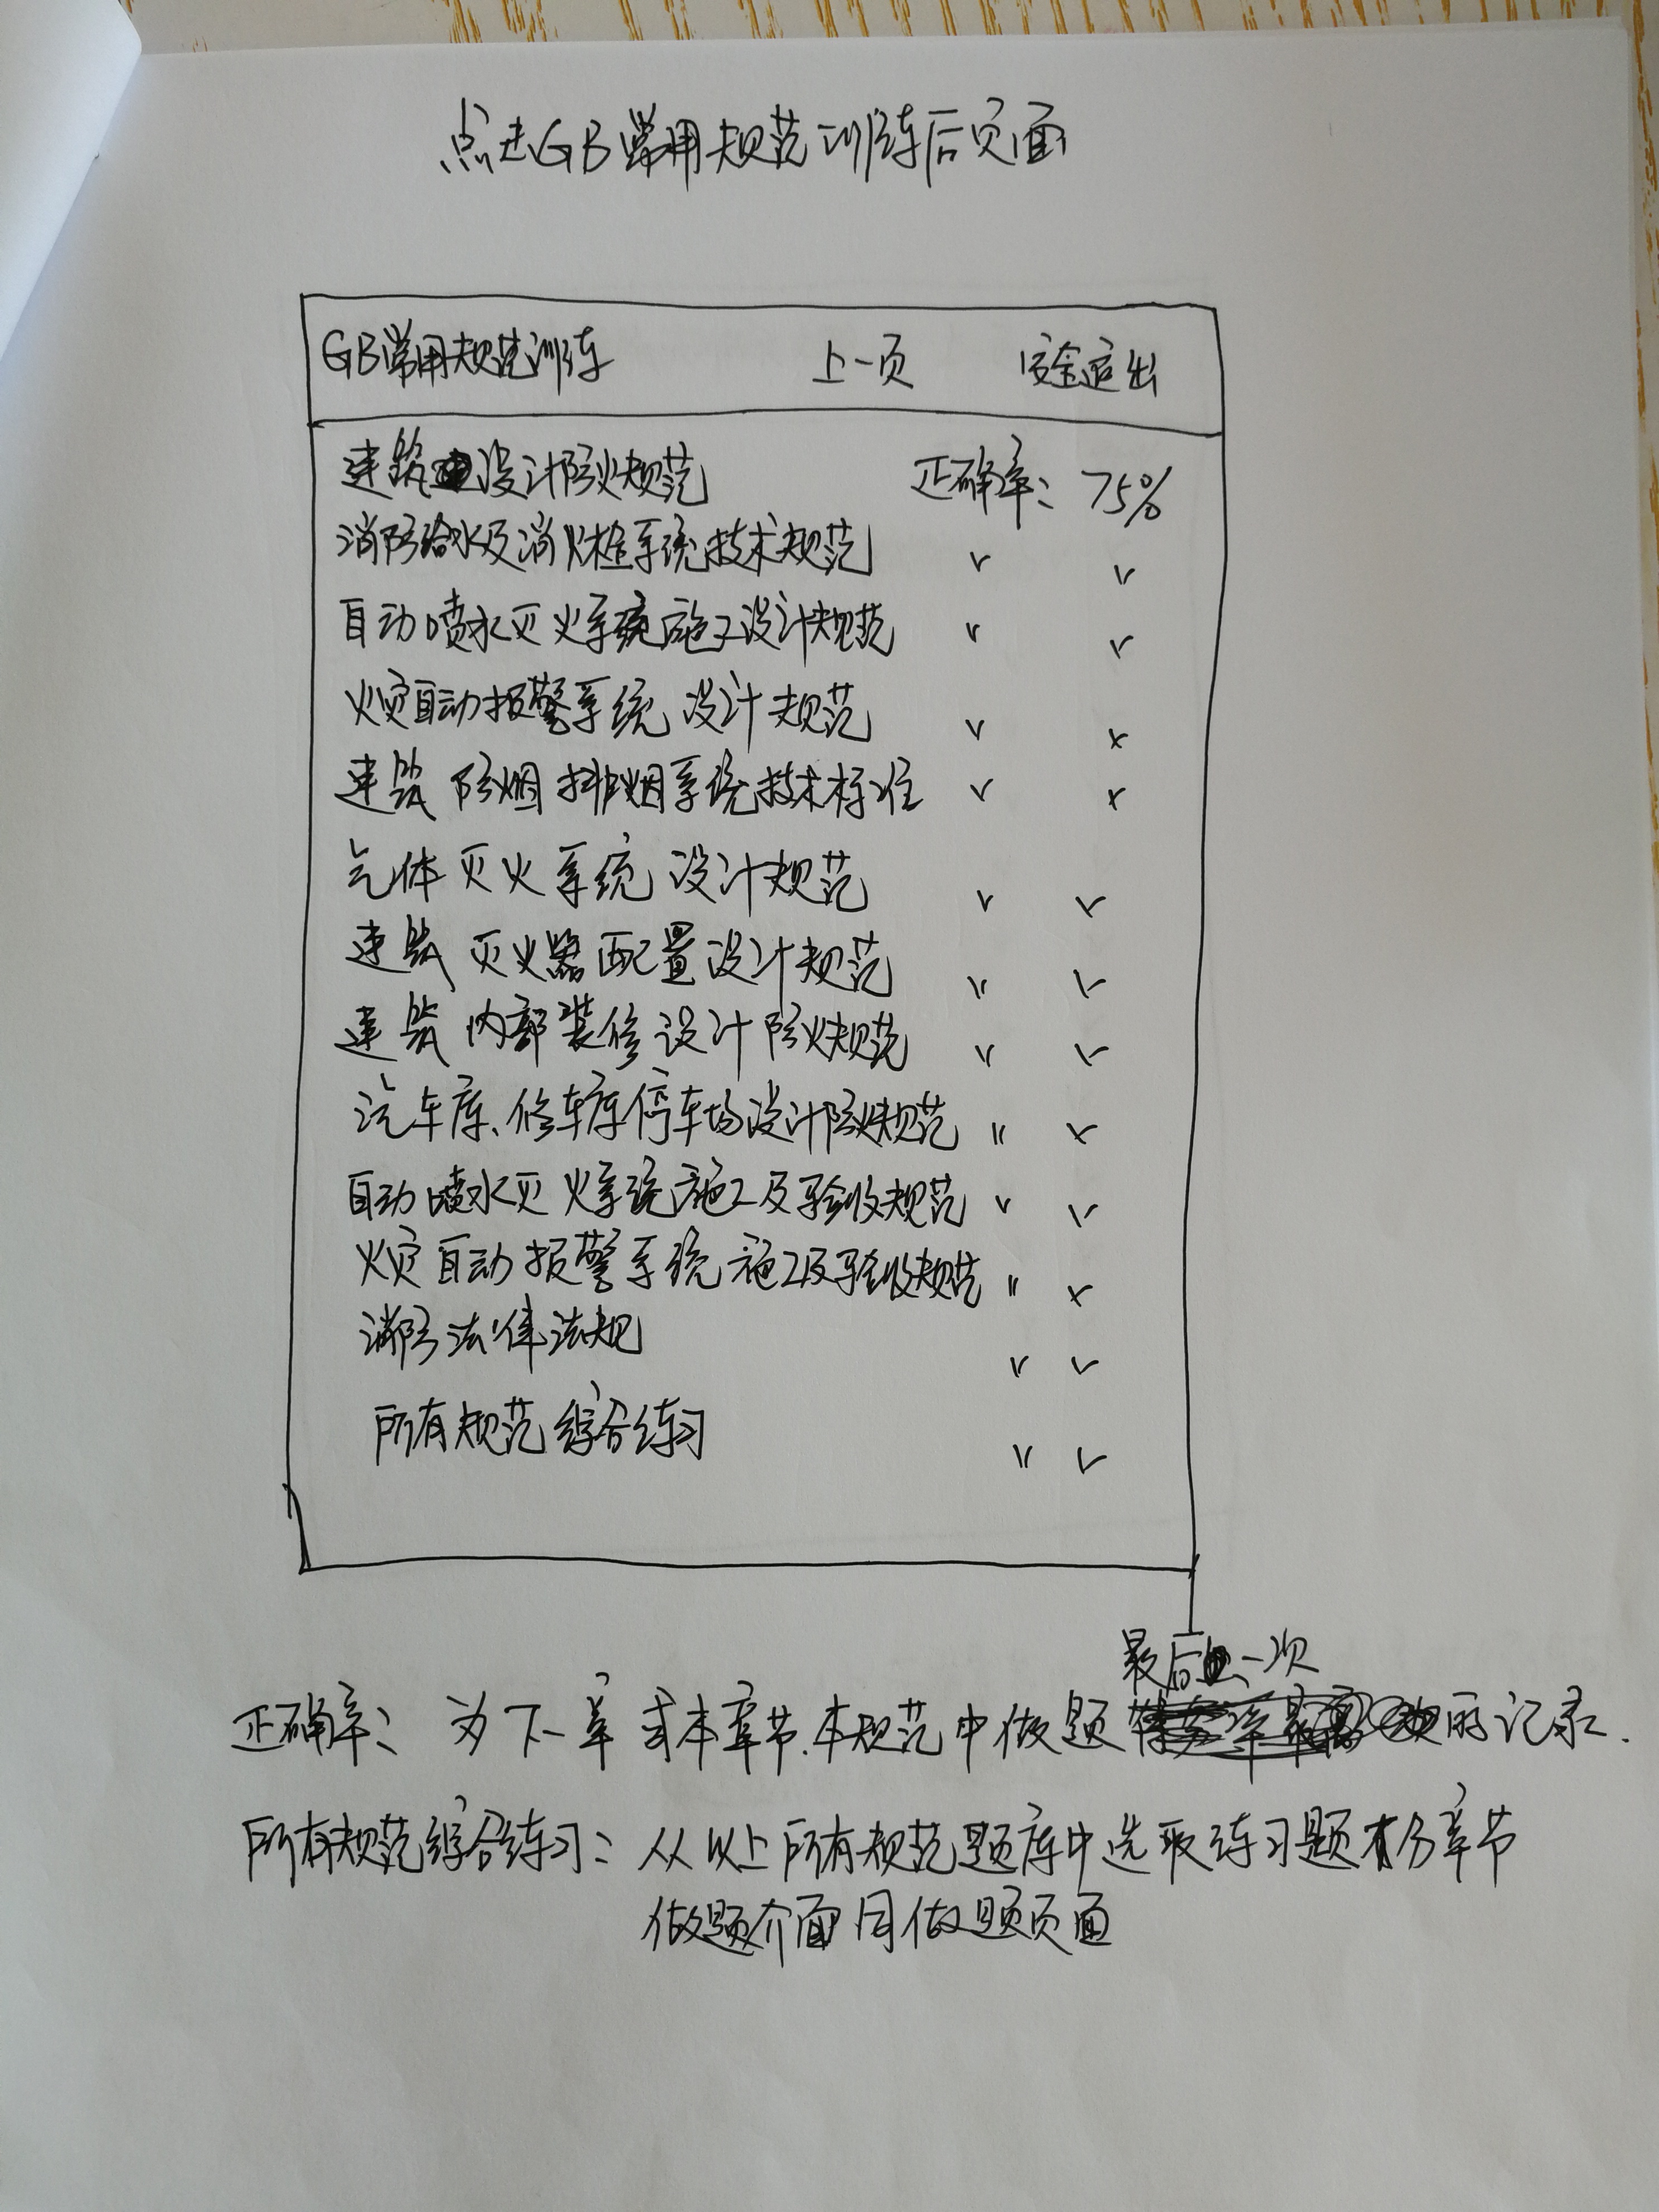 点进GB常用规范训练后页面
GB常用规范训练 上一页 安全退出
建筑设计防火规范 正确率: 75%
消防给水及消火栓系统技术规范 〃 〃
自动喷水灭火系统施工设计规范 〃 〃
火灾自动报警系统设计规范 〃 〃
建筑防烟排烟系统技术标准 〃 〃
气体灭火系统设计规范 〃 〃
建筑灭火器配置设计规范 〃 〃
建筑内部装修设计防火规范 〃 〃
汽车库、修车库停车场设计防火规范 〃 〃
自动喷水灭火系统施工及验收规范 〃 〃
火灾自动报警系统施工及验收规范 〃 〃
消防法律法规 〃 〃
所有规范综合练习 〃 〃
最后一次
正确率: 为下一章或本章节.本规范中做题的记录.
所有规范综合练习: 从以上所有规范题库中选取练习题 分章节
做题介面同做题页面